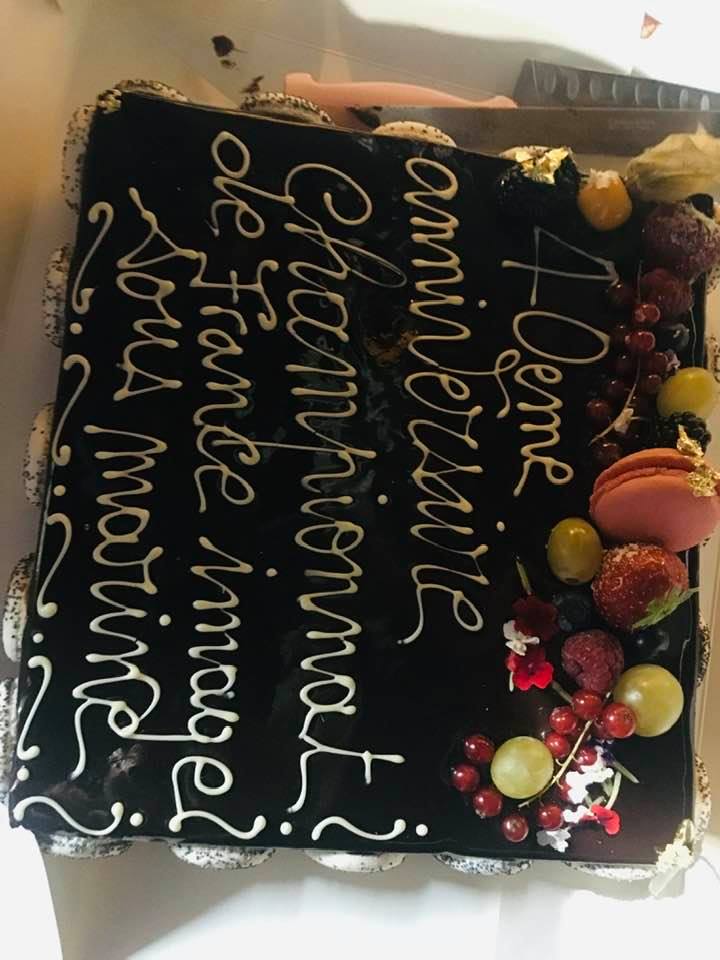 40eme
anniversaire
Championnat
de France images
sous marine